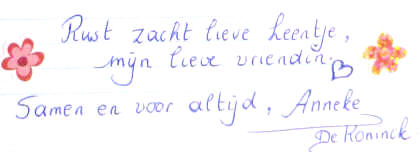 Rust zacht lieve Leentje,
mijn lieve vriendin.
Samen en voor altijd, Anneke
De Koninck